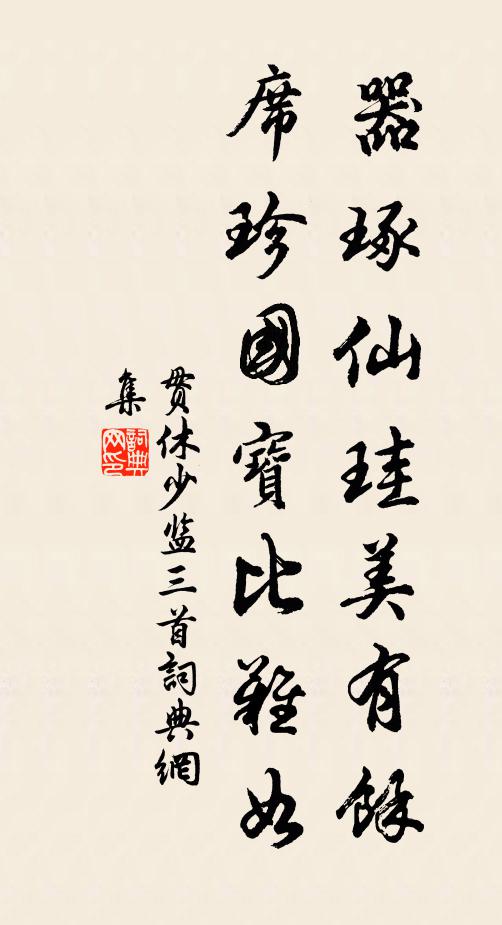 器琢仙珪美有餘
席珍國寶比難如
貫休少监三首詞典網
集
詞典網印